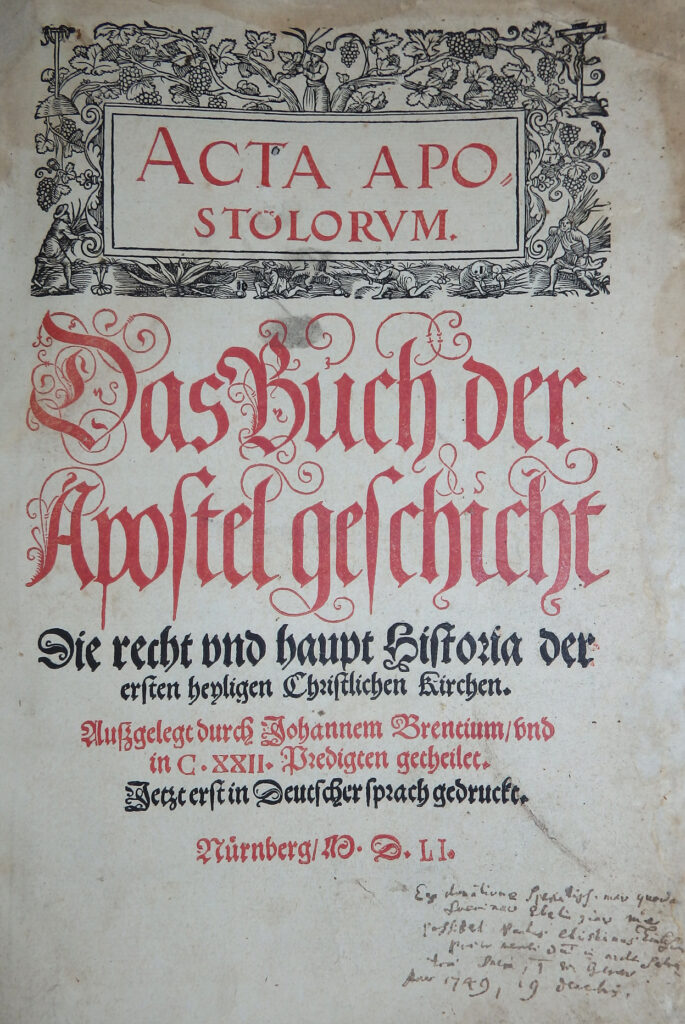 ACTA APO⸗
STOLORVM.
Das Buch der
Apoſtel geſchicht
Die recht vnd haupt Hiſtoria der
erſten heyligen Chriſtlichen Kirchen.
Außgelegt durch Johannem Brentium/ vnd
in C. XXII. Predigten getheilet.
Jetzt erſt in Deutſcher ſprach gedruckt.
Nürnberg/ M. D. LI.
Ex
possidet
1749, 19